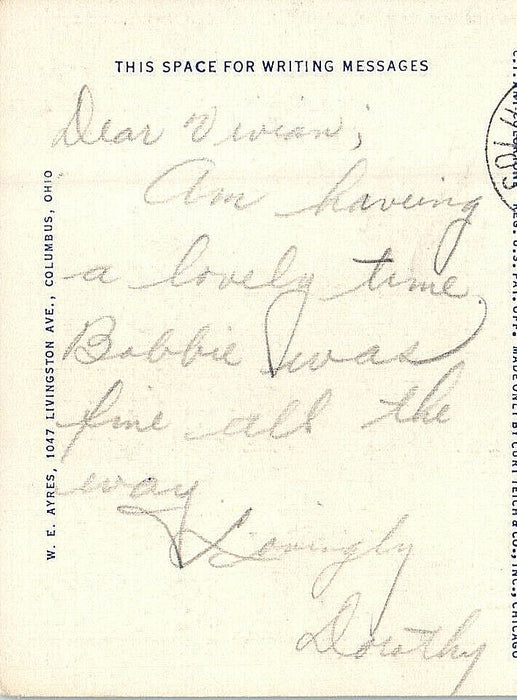 THIS SPACE FOR WRITING MESSAGES
Dear Vivian;
Am haveing
a lovely time
Bobbie was
fine all the
way
Lovingly
Dorothy
W. E. AYRES, 1047 LIVINGSTON AVE., COLUMBUS, OHIO
REG. U.S. PAT. OFF. MADE ONLY BY CURT TEICH & CO., INC., CHICAGO